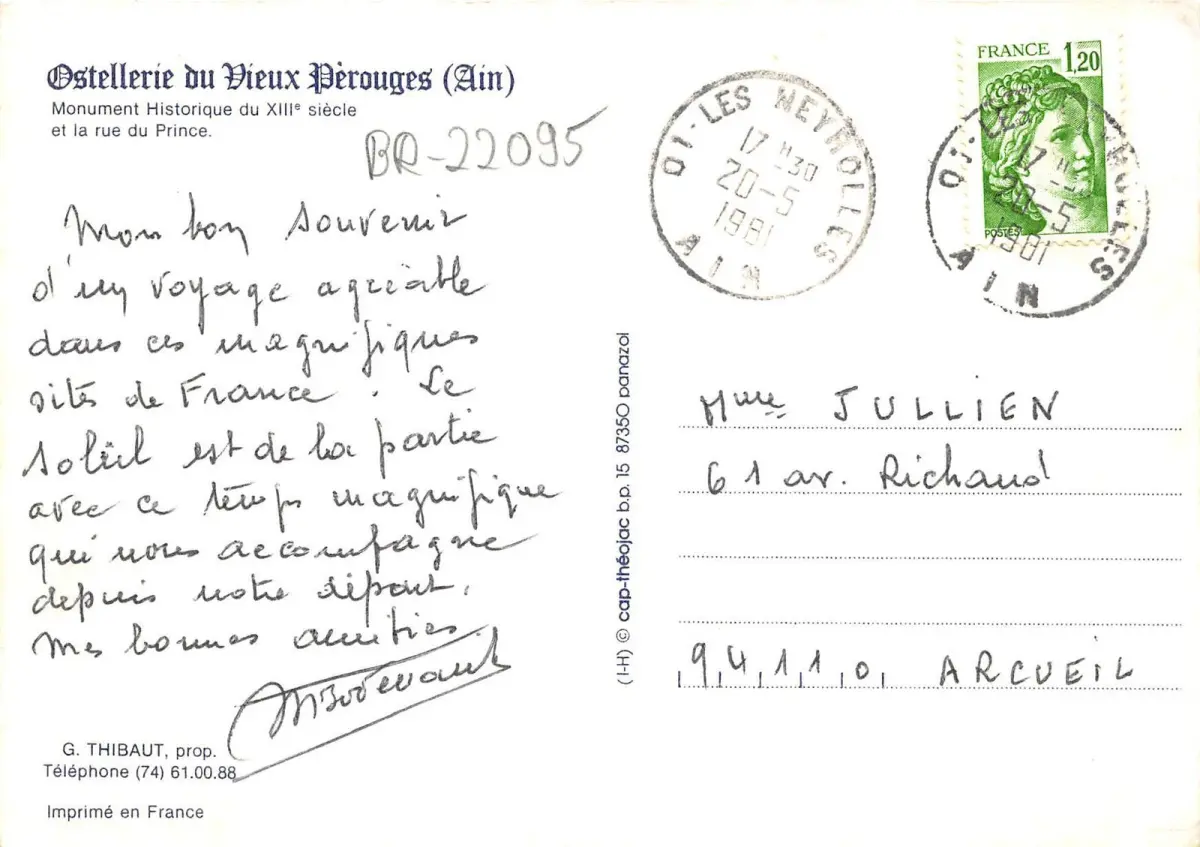 Ostellerie du Vieux Pèrouges (Ain)
Monument Historique du XIIIe siècle
et la rue du Prince.
BR-22095
Mon bon souvenir
d'un voyage agréable
dans ces magnifiques
sites de France. Le
soleil est de la partie
avec ce temps magnifique
qui nous accompagne
depuis notre départ.
Mes bonnes amitiés.
G. THIBAUT, prop.
Téléphone (74) 61.00.88
Imprimé en France
(I-H) © cap-théojac b.p. 15 87350 panazol
01-LES NEYROLLES
17 H30
20-5
1981
AIN
FRANCE 1,20
POSTES
01-LES NEYROLLES
17 H
20-5
1981
AIN
Mme JULLIEN
61 av. Richaud
94110 ARCUEIL